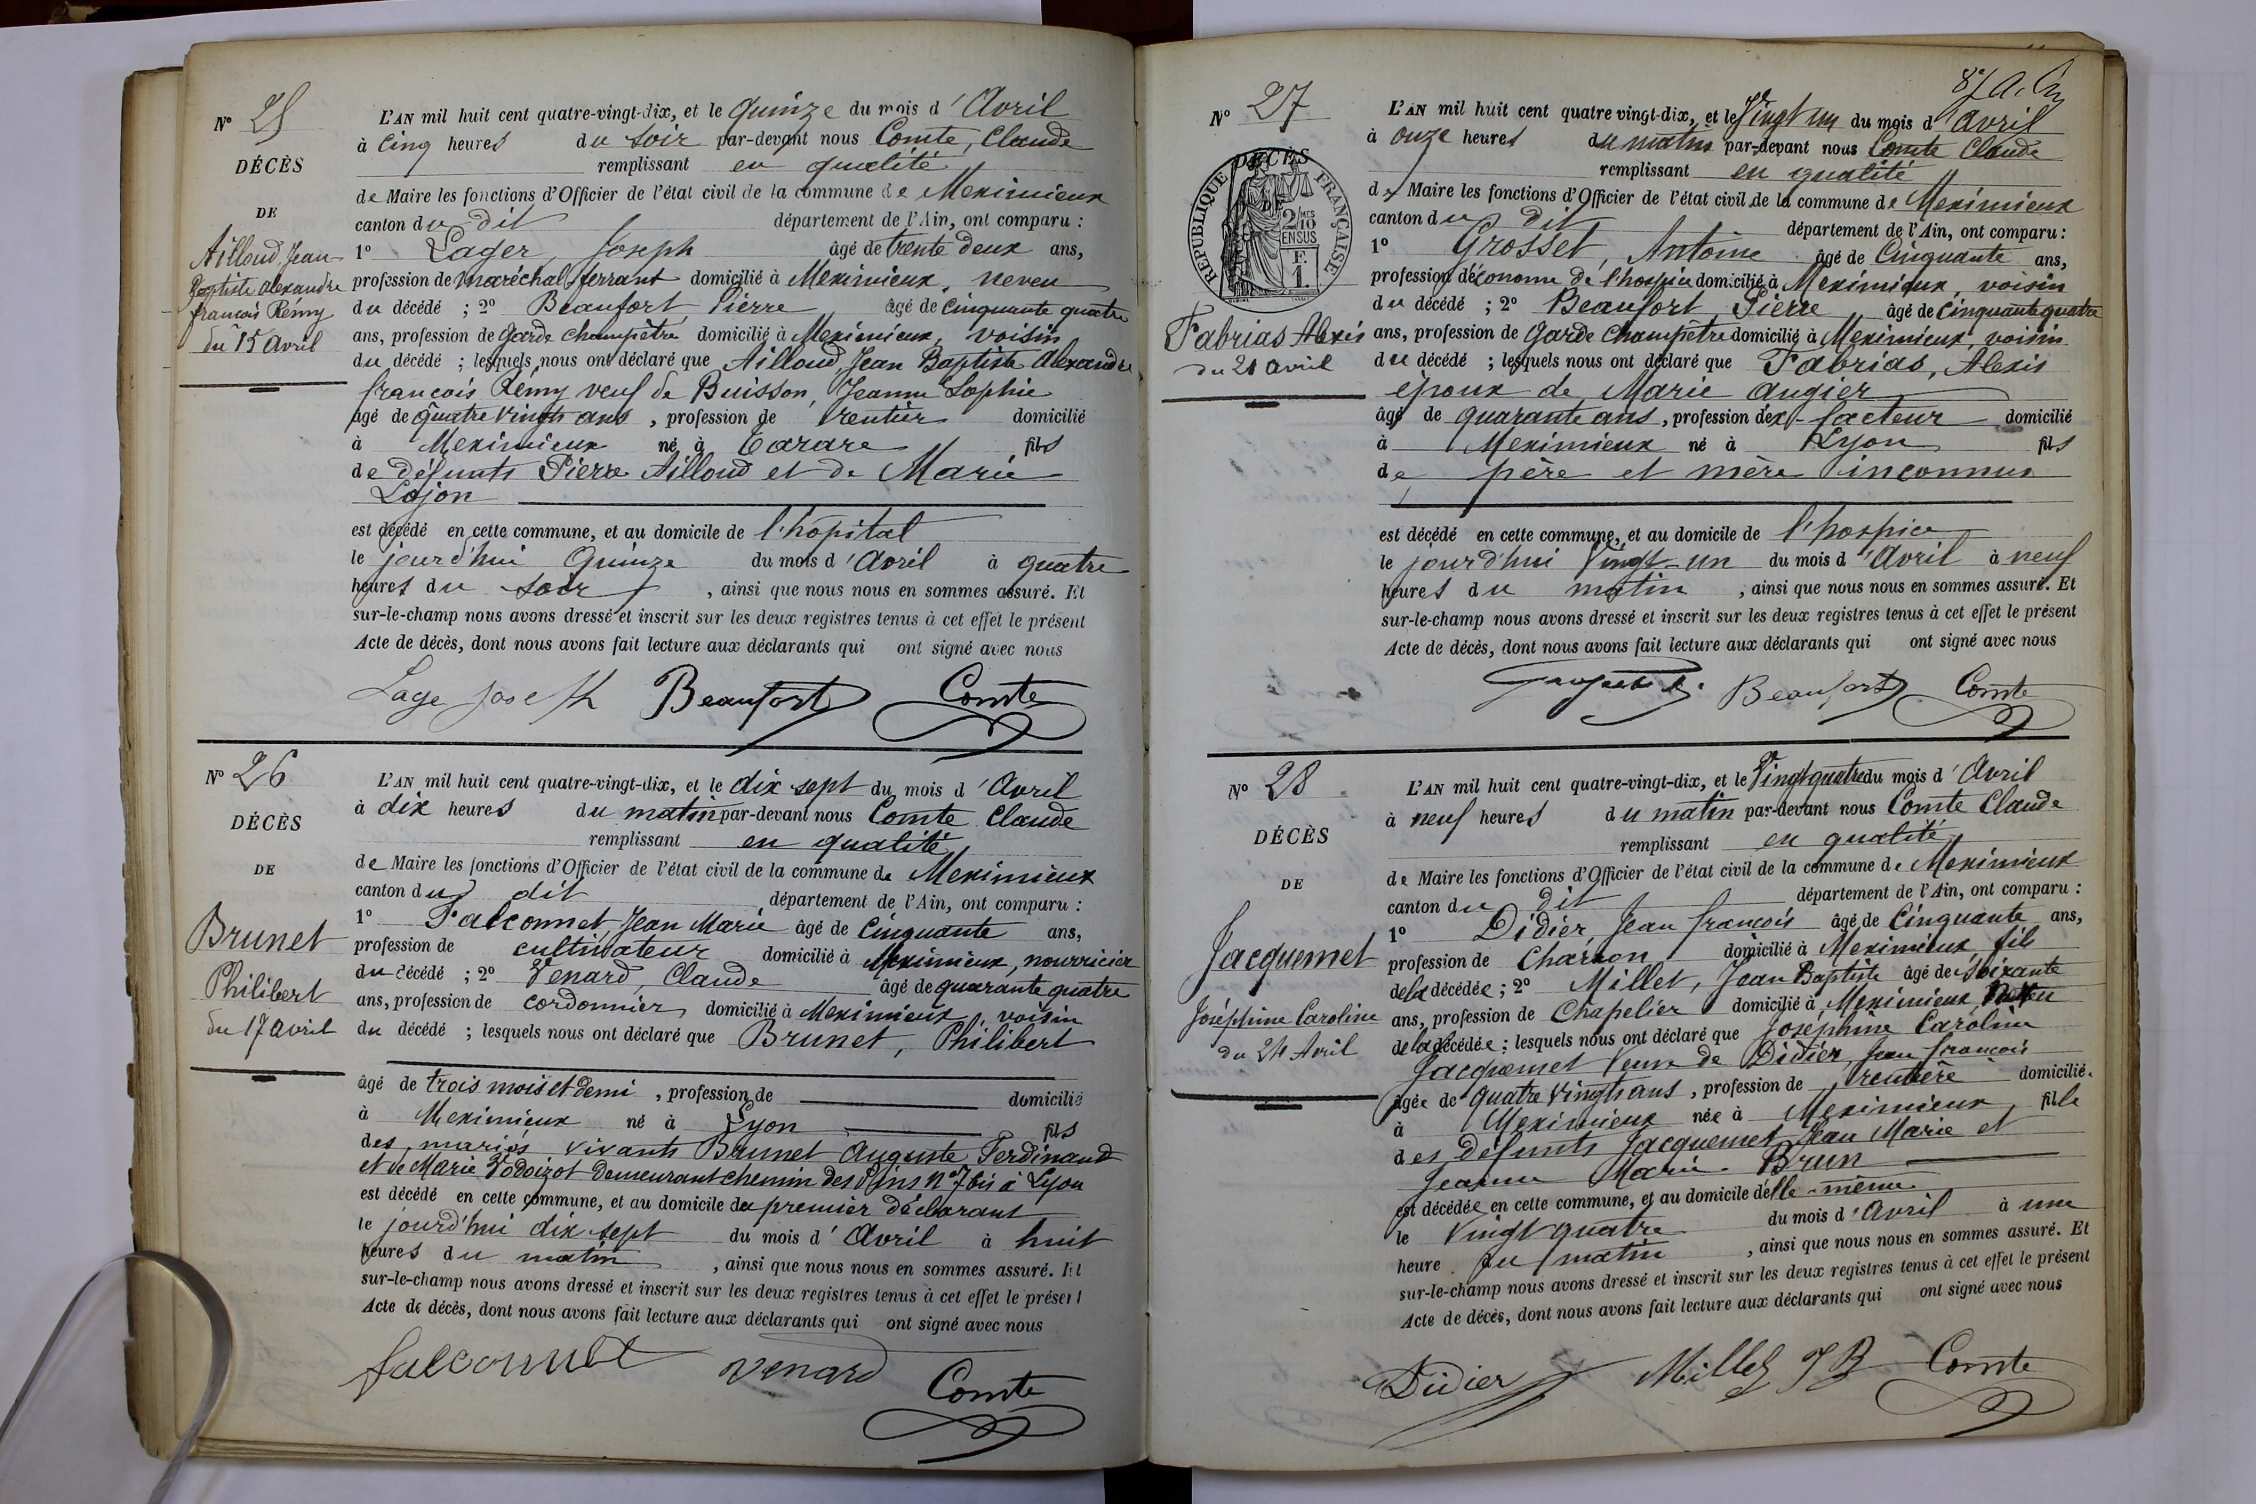 N° 25
DÉCÈS
DE
Ailloud, Jean
Baptiste Alexandre
François Rémy
du 15 Avril
L'AN mil huit cent quatre-vingt-dix, et le quinze du mois d'Avril
à cinq heures du soir par-devant nous Comte, Claude
remplissant en qualité
de Maire les fonctions d'Officier de l'état civil de la commune de Meximieux
canton du dit département de l'Ain, ont comparu :
1° Lager, Joseph âgé de trente deux ans,
profession de maréchal ferrant domicilié à Meximieux, neveu
du décédé ; 2° Beaufort, Pierre âgé de cinquante quatre
ans, profession de Garde champêtre domicilié à Meximieux, voisin
du décédé ; lesquels nous ont déclaré que Ailloud, Jean Baptiste Alexandre
françois Rémy veuf de Buisson, Jeanne Sophie
âgé de quatre vingts ans, profession de rentier domicilié
à Meximieux né à Tarare fils
de défunts Pierre Ailloud et de Marie
Lajon
est décédé en cette commune, et au domicile de l'hôpital
le jourd'hui Quinze du mois d'Avril à quatre
heures du soir, ainsi que nous nous en sommes assuré. Et
sur-le-champ nous avons dressé et inscrit sur les deux registres tenus à cet effet le présent
Acte de décès, dont nous avons fait lecture aux déclarants qui ont signé avec nous
Lage Joseph Beaufort Comte
N° 26
DÉCÈS
DE
Brunet
Philibert
du 17 avril
L'AN mil huit cent quatre-vingt-dix, et le dix sept du mois d'Avril
à dix heures du matin par-devant nous Comte Claude
remplissant en qualité
de Maire les fonctions d'Officier de l'état civil de la commune de Meximieux
canton du dit département de l'Ain, ont comparu :
1° Falconnet, Jean Marie âgé de Cinquante ans,
profession de cultivateur domicilié à Meximieux, nourricier
du décédé ; 2° Venard, Claude âgé de quarante quatre
ans, profession de cordonnier domicilié à Meximieux, voisin
du décédé ; lesquels nous ont déclaré que Brunet, Philibert
âgé de trois mois et demi, profession de domicilié
à Meximieux né à Lyon fils
des mariés vivants Brunet Auguste Ferdinand
et de Marie demeurant chemin des Pins N° 7 bis à Lyon
est décédé en cette commune, et au domicile du premier déclarant
le jourd'hui dix-sept du mois d'Avril à huit
heures du matin, ainsi que nous nous en sommes assuré. Et
sur-le-champ nous avons dressé et inscrit sur les deux registres tenus à cet effet le présent
Acte de décès, dont nous avons fait lecture aux déclarants qui ont signé avec nous
falconnet Venard Comte
87
N° 27
DÉCÈS
DE
RÉPUBLIQUE FRANÇAISE
2/10 MES
EN SUS
F.
1.
Fabrias Alexis
du 21 avril
L'AN mil huit cent quatre vingt-dix, et le Vingt un du mois d'Avril
à onze heures du matin par-devant nous Comte Claude
remplissant en qualité
de Maire les fonctions d'Officier de l'état civil de la commune de Meximieux
canton du dit département de l'Ain, ont comparu :
1° Grosset, Antoine âgé de Cinquante ans,
profession d'économe de l'hospice domicilié à Meximieux, voisin
du décédé ; 2° Beaufort, Pierre âgé de cinquante quatre
ans, profession de Garde champêtre domicilié à Meximieux, voisin
du décédé ; lesquels nous ont déclaré que Fabrias, Alexis
époux de Marie Augier
âgé de quarante ans, profession d'ex-facteur domicilié
à Meximieux né à Lyon fils
de père et mère inconnus
est décédé en cette commune, et au domicile de l'hospice
le jourd'hui Vingt-un du mois d'Avril à neuf
heures du matin, ainsi que nous nous en sommes assuré. Et
sur-le-champ nous avons dressé et inscrit sur les deux registres tenus à cet effet le présent
Acte de décès, dont nous avons fait lecture aux déclarants qui ont signé avec nous
Beaufort Comte
N° 28
DÉCÈS
DE
Jacquemet
Joséphine Caroline
du 24 Avril
L'AN mil huit cent quatre-vingt-dix, et le Vingt quatre du mois d'Avril
à neuf heures du matin par-devant nous Comte Claude
remplissant en qualité
de Maire les fonctions d'Officier de l'état civil de la commune de Meximieux
canton du dit département de l'Ain, ont comparu :
1° Didier, Jean françois âgé de Cinquante ans,
profession de Charron domicilié à Meximieux, fils
de la décédée ; 2° Millet, Jean Baptiste âgé de soixante
ans, profession de Chapelier domicilié à Meximieux, neveu
de la décédée ; lesquels nous ont déclaré que Joséphine Caroline
Jacquemet Veuve de Didier, Jean françois
âgée de quatre vingts ans, profession de rentière domiciliée
à Meximieux née à Meximieux, fille
des défunts Jacquemet Jean Marie et
Jeanne Marie Brun
est décédée en cette commune, et au domicile d'elle-même
le vingt quatre du mois d'Avril à une
heure du matin, ainsi que nous nous en sommes assuré. Et
sur-le-champ nous avons dressé et inscrit sur les deux registres tenus à cet effet le présent
Acte de décès, dont nous avons fait lecture aux déclarants qui ont signé avec nous
Didier Millet JB Comte